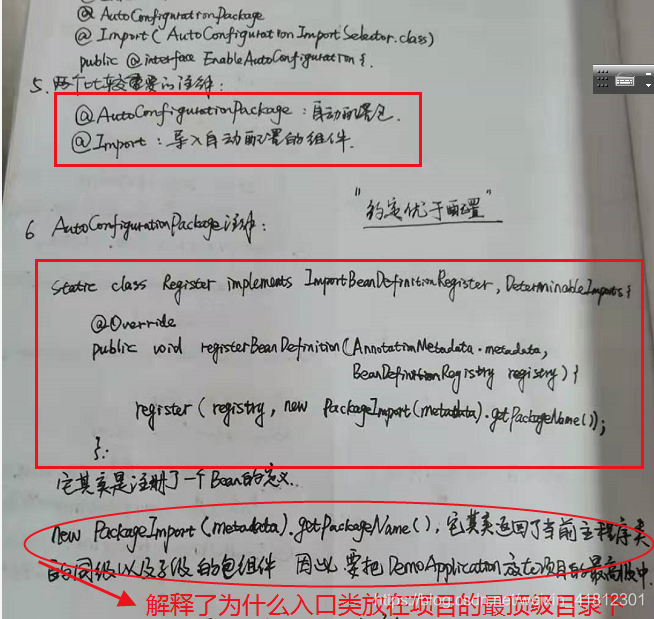 @ AutoConfigurationPackage
@ Import ( AutoConfiguration Import Selector.class)
public @interface EnableAutoConfiguration {.
5. 两个比较重要的注解：
@AutoConfigurationPackage : 自动配置包.
@Import : 导入自动配置的组件.
"约定优于配置"
6 AutoConfigurationPackage 注解：
static class Register implements ImportBeanDefinitionRegister, DeterminableImports {
@Override
public void registerBeanDefinition(AnnotationMetadata metadata,
BeanDefinitionRegistry registry) {
register ( registry, new PackageImport(metadata).getPackageName());
}
它其实是注册了一个Bean的定义.
new PackageImport(metadata).getPackageName(), 它其实返回了当前主程序类
的同级以及子级的包组件 因此 要把DemoApplication 放在项目的最高级中.
解释了为什么入口类放在项目的最顶级目录下